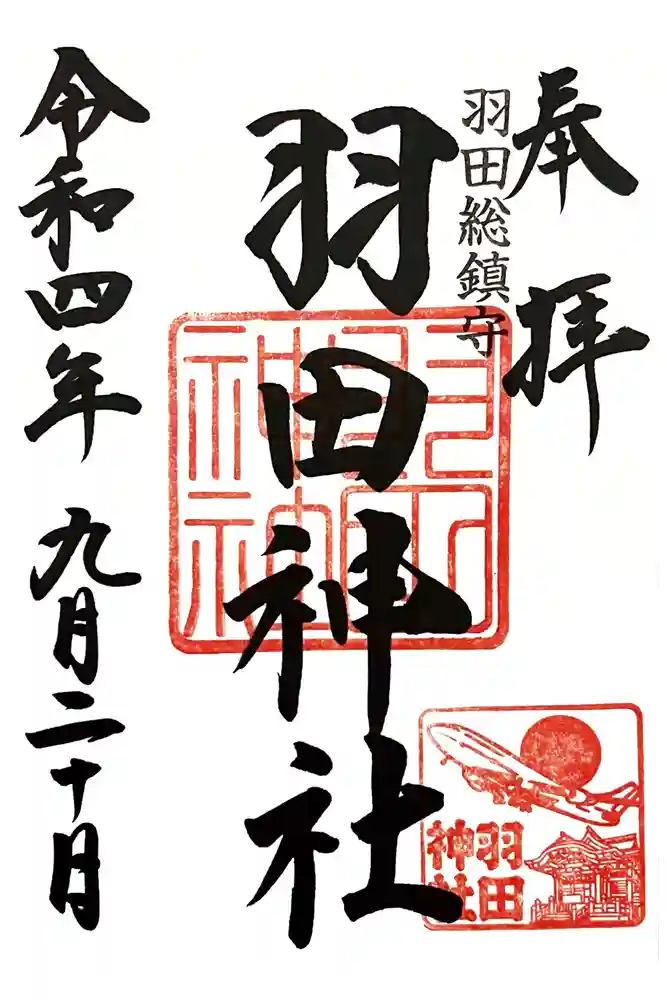 奉拝
羽田総鎮守
羽田神社
令和四年 九月二十日
羽田
神社